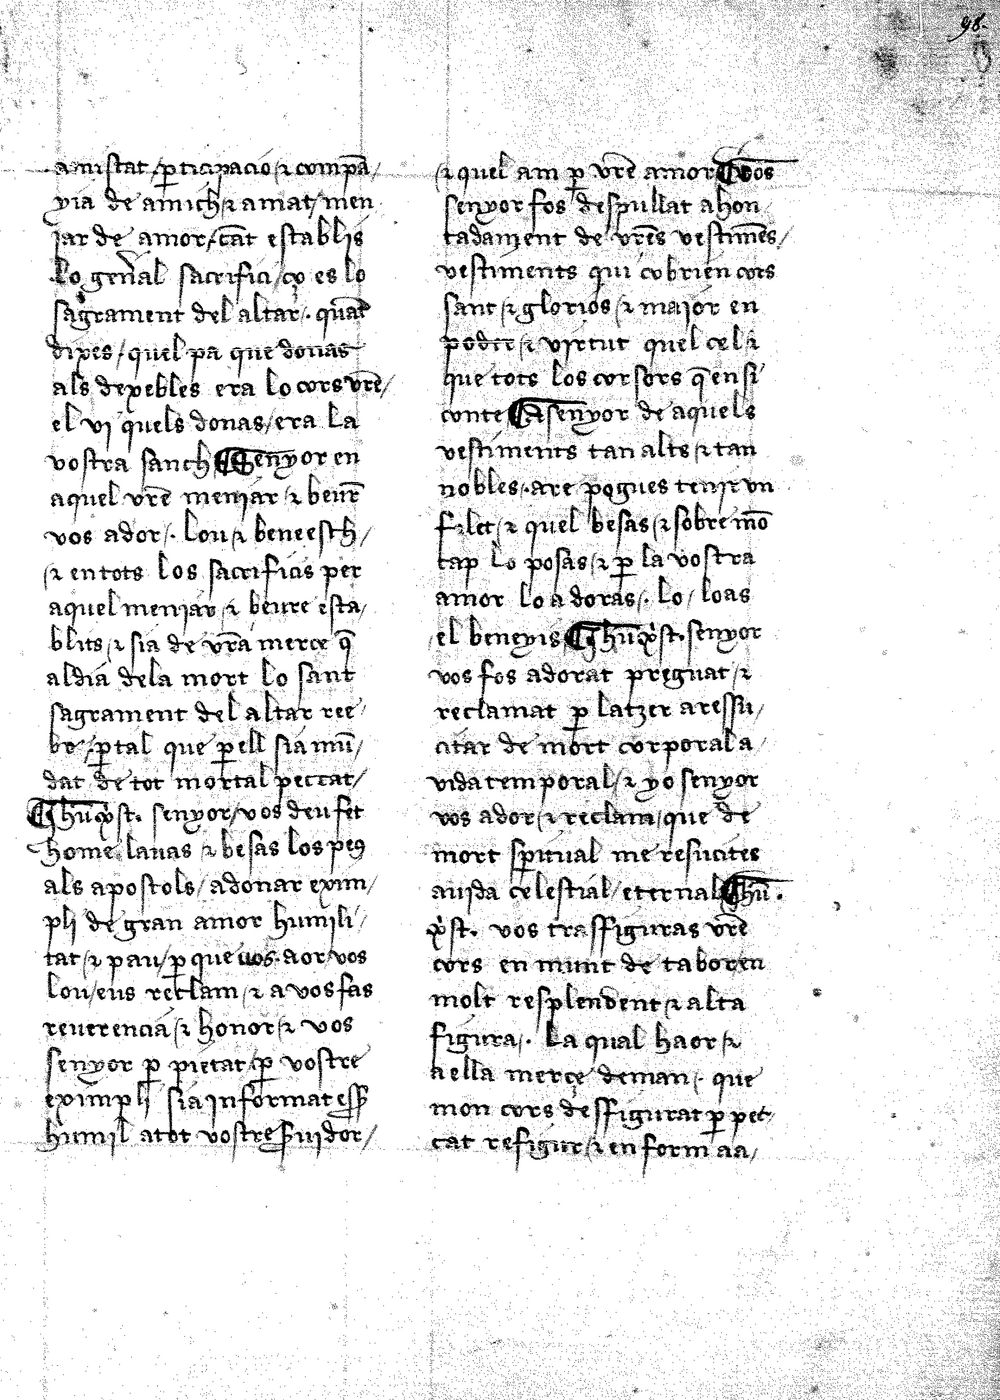 98.
amistat / ꝑticipacio / ⁊ compā /
yia de amich ⁊ amat / men
jar de amor / cāt establis
lo gen̄al sacrifici / ço es lo
sagrament del altar /. quāt
dixes / quel pa que donas
als dexebles era lo cors vr̄e /
el vi quels donas / era la
vostra sanch Senyor en
aquel vr̄e meniar ⁊ beur̄
vos ador /. lou ⁊ beneesch /
⁊ en tots los sacrificis per
aquel meniar ⁊ beure esta /
blits / ⁊ sia de vr̄a merce q̄
al dia dela mort lo sant
sagrament del altar ree /
be / ꝑ tal que ꝑ ell sia mū /
dat de tot mortal peccat /
Jhū xp̄st. senyor / vos deu fet
home lauas ⁊ besas los peus
als apostols / a donar exim /
pli de gran amor humili /
tat / ⁊ pau / ꝑ que uos. aor / vos
lou / eus reclam / ⁊ a vos fas
reuerencia / ⁊ honor / ⁊ vos
senyor ꝑ pietat / ꝑ vostre
eximpli sia informat esser
humil a tot vostre seruidor /
⁊ quel am ꝑ vr̄e amor Vos
senyor fos despullat ahon
tadament de vr̄es vestimēs /
vestiments qui cobrien cors
sant / ⁊ glorios / ⁊ maior en
poder / ⁊ virtut quel cel ⁊
que tots los cors qen si
conte A senyor de aquels
vestiments tan alts ⁊ tan
nobles /. are pogues tenir vn
filet / ⁊ quel besas / ⁊ sobre mō
cap lo posas / ⁊ ꝑ la vostra
amor lo adoras /. lo / loas
el beneyis Jhū xp̄st. senyor
vos fos adorat preguat / ⁊
reclamat ꝑ latzer a ressu /
citar de mort corporal a /
vida temporal / ⁊ yo senyor
vos ador / ⁊ reclam / que de
mort spūal me resucites
a uida celestial / eternal Jhū.
xp̄st. vos trasfiguras vr̄e
cors en munt de tabor en
molt resplendent ⁊ alta
figura /. La qual haor / ⁊
a ella merce deman /. que
mon cors desfigurat ꝑ pec
cat refigur / ⁊ enform aa /